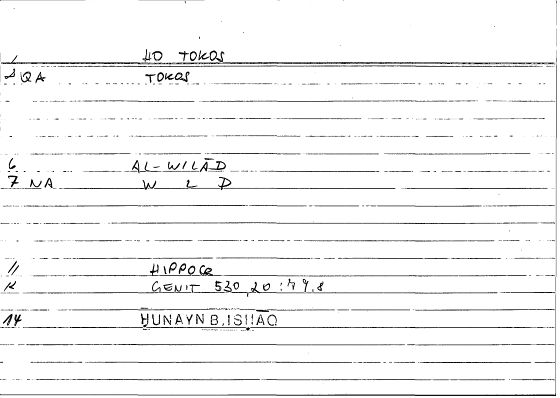 1 HO TOKOS
2 QA TOKOS
6 AL-WILĀD
7 NA W L D
11 HIPPOCR
12 GENIT 530,20:77.8
14 ḤUNAYN B.ISḤĀQ